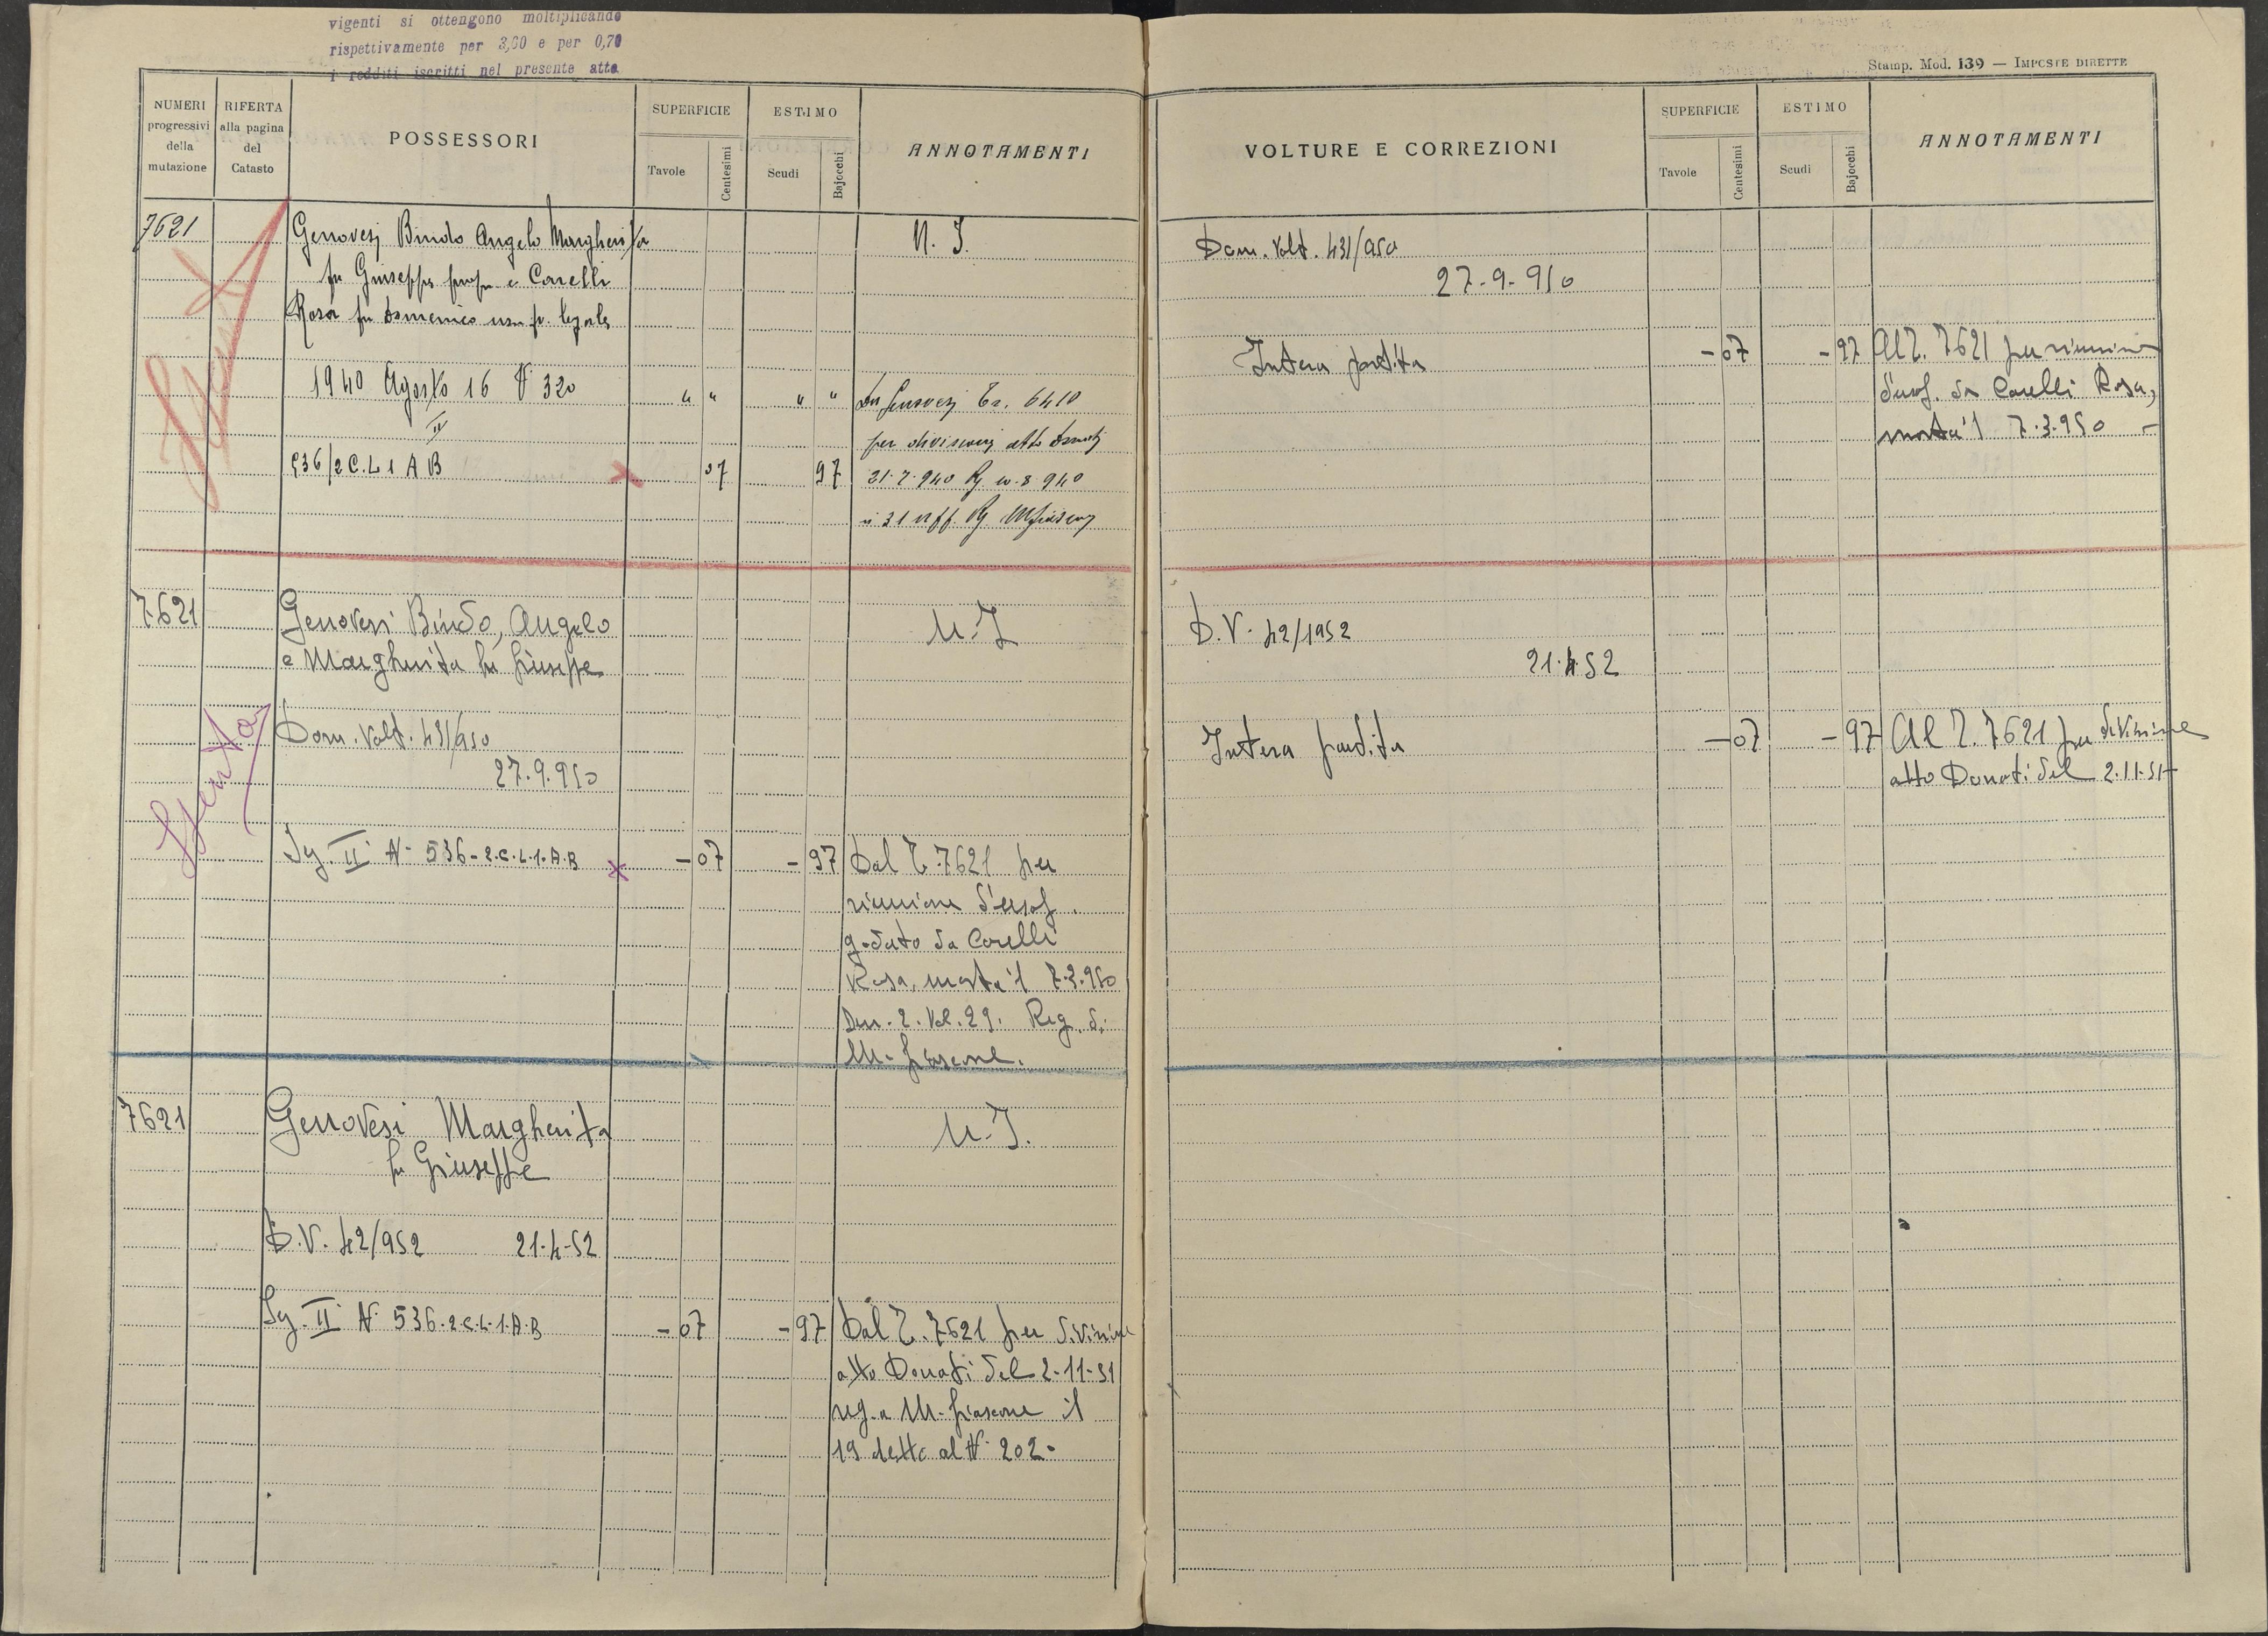 vigenti si ottengono moltiplicando
rispettivamente per 3,60 e per 0,70
i redditi iscritti nel presente atto.
NUMERI progressivi della mutazione
RIFERTA alla pagina del Catasto
POSSESSORI
SUPERFICIE
Tavole
Centesimi
ESTIMO
Scudi
Bajocchi
ANNOTAMENTI
7621
Genovesi Bindo Angelo Margherita
fu Giuseppe prop. e Corelli
Rosa fu Domenico usuf. legale
N. I.
1940 Agosto 16 N 320
" " " "
Da Genovesi 6410
per divisione atto Donati
II
536/2 C.L 1 A B
07 97
21-7-940 Rg. 10-8-940
n 31 uff. Rg Mfiascone
Spenta
7621
Genovesi Bindo, Angelo
e Margherita fu Giuseppe
M. I.
Dom. Volt. 431/950
27.9.950
Sez. II N. 536-2.C.L.1.A.B
-07 -97
Dal T. 7621 per
riunione d'usuf.
goduto da Corelli
Rosa, morta il 7.3.950
Den. 2. Vol. 29. Reg. di
M. fiascone.
Spenta
7621
Genovesi Margherita
fu Giuseppe
M. I.
D.V. 42/952 21-4-52
Sez. II N. 536.2.C.L.1.A.B
-07 -97
Dal T. 7621 per divisione
atto Donati del 2-11-51
reg. a M. fiascone il
19 detto al N. 202.
Stamp. Mod. 139 — IMPOSTE DIRETTE
VOLTURE E CORREZIONI
SUPERFICIE
Tavole
Centesimi
ESTIMO
Scudi
Bajocchi
ANNOTAMENTI
Dom. Volt. 431/950
27-9-950
Intera partita
-07 -97
Al T. 7621 per riunione
d'usuf. da Corelli Rosa,
morta il 7.3.950 -
D.V. 42/1952
21.4.52
Intera partita
-07 -97
Al T. 7621 per divisione
atto Donati del 2.11.51